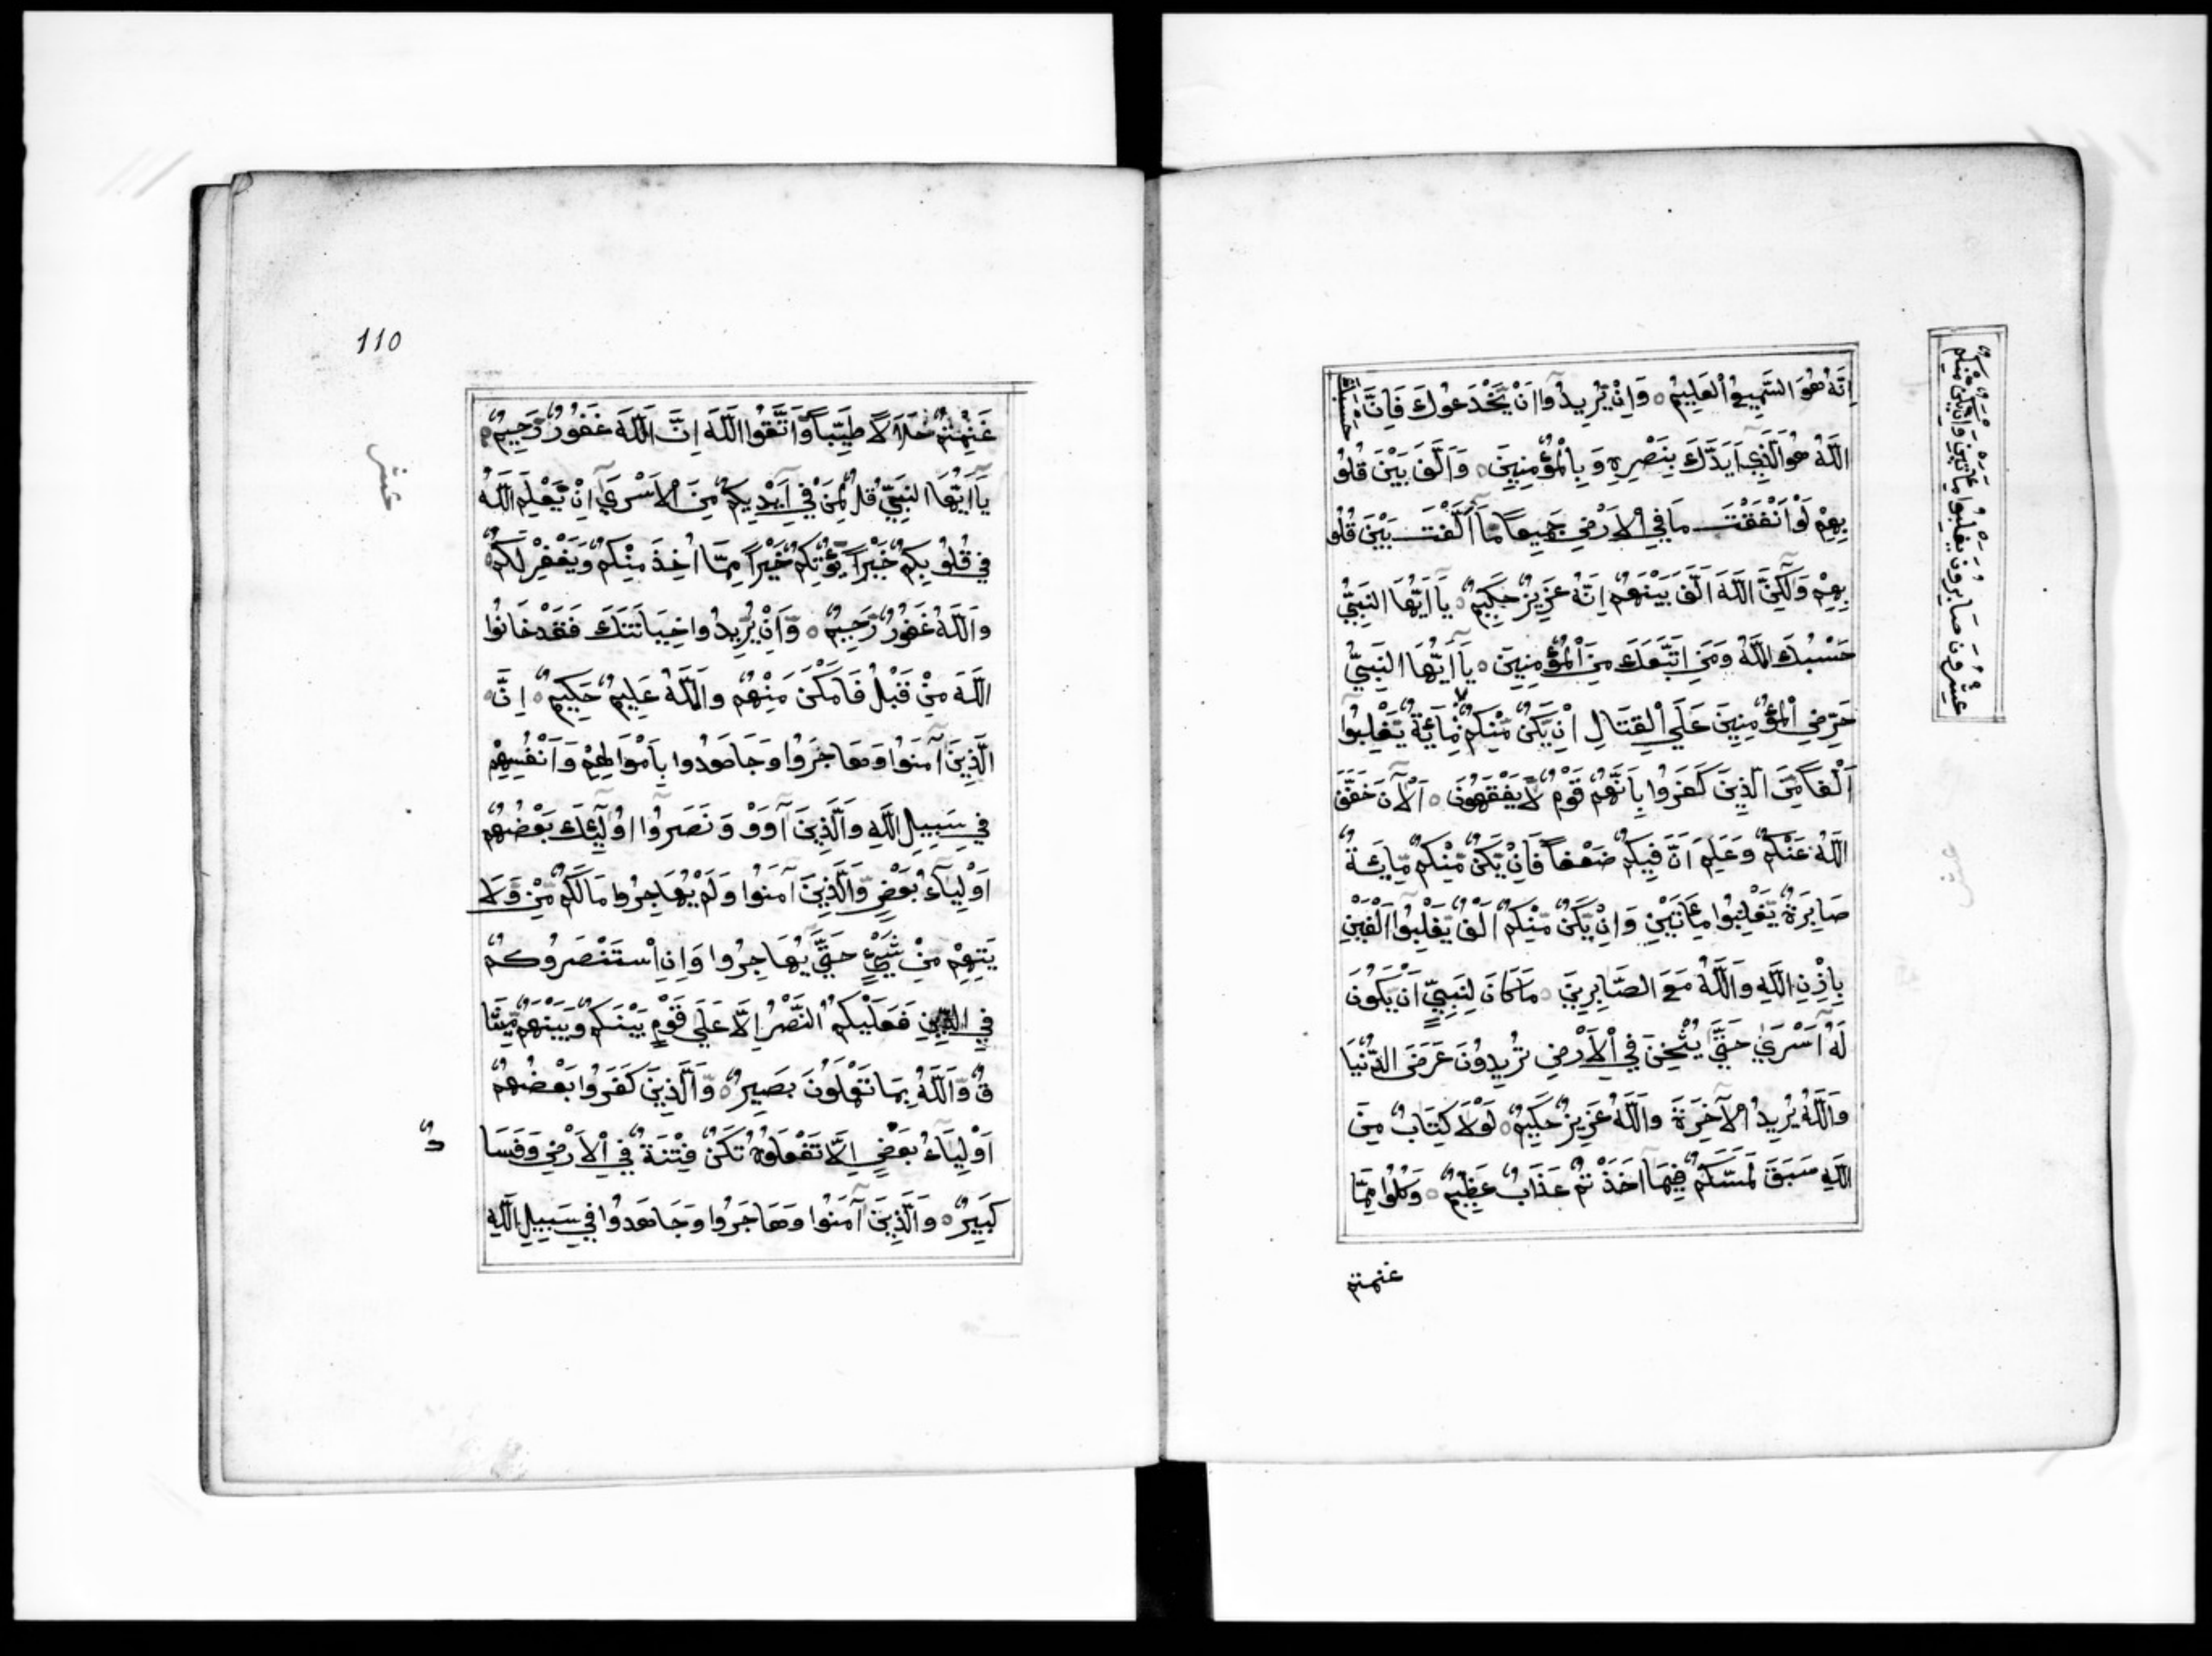 اِنَّهُ هُوَ السَّمِيعُ الْعَلِيمُ ۝ وَاِنْ يُّرِيدُوآ اَنْ يَّخْدَعُوكَ فَاِنَّ حَسْبَكَ
اللّٰهُ هُوَ الَّذِي اَيَّدَكَ بِنَصْرِهِ وَبِالْمُؤْمِنِينَ ۝ وَاَلَّفَ بَيْنَ قُلُو
بِهِمْ لَوْ اَنْفَقْتَ مَا فِي الْاَرْضِ جَمِيعًا مَّآ اَلَّفْتَ بَيْنَ قُلُو
بِهِمْ وَلٰكِنَّ اللّٰهَ اَلَّفَ بَيْنَهُمْ اِنَّهُ عَزِيزٌ حَكِيمٌ ۝ يَآ اَيُّهَا النَّبِيُّ
حَسْبُكَ اللّٰهُ وَمَنِ اتَّبَعَكَ مِنَ الْمُؤْمِنِينَ ۝ يَآ اَيُّهَا النَّبِيُّ
حَرِّضِ الْمُؤْمِنِينَ عَلَي الْقِتَالِ اِنْ يَّكُنْ مِّنْكُمْ مِّائَةٌ يَّغْلِبُوآ
اَلْفًا مِّنَ الَّذِينَ كَفَرُوا بِاَنَّهُمْ قَوْمٌ لَّا يَفْقَهُونَ ۝ اَلْآنَ خَفَّفَ
اللّٰهُ عَنْكُمْ وَعَلِمَ اَنَّ فِيكُمْ ضَعْفًا فَاِنْ يَّكُنْ مِّنْكُمْ مِّائَةٌ
صَابِرَةٌ يَّغْلِبُوا مِائَتَيْنِ وَاِنْ يَّكُنْ مِّنْكُمْ اَلْفٌ يَّغْلِبُوآ اَلْفَيْنِ
بِاِذْنِ اللّٰهِ وَاللّٰهُ مَعَ الصَّابِرِينَ ۝ مَا كَانَ لِنَبِيٍّ اَنْ يَّكُونَ
لَهُ اَسْرَي حَتَّي يُثْخِنَ فِي الْاَرْضِ تُرِيدُونَ عَرَضَ الدُّنْيَا
وَاللّٰهُ يُرِيدُ الْآخِرَةَ وَاللّٰهُ عَزِيزٌ حَكِيمٌ ۝ لَوْلَا كِتَابٌ مِّنَ
اللّٰهِ سَبَقَ لَمَسَّكُمْ فِيمَآ اَخَذْتُمْ عَذَابٌ عَظِيمٌ ۝ وَكُلُوا مِمَّا
غنمتم
مِنْكُمْ عِشْرُونَ صَابِرُونَ يَغْلِبُوا مِائَتَيْنِ وَاِنْ يَّكُنْ مِّنْكُمْ
110
غَنِمْتُمْ حَلَالًا طَيِّبًا وَّاتَّقُوا اللّٰهَ اِنَّ اللّٰهَ غَفُورٌ رَّحِيمٌ ۝
يَآ اَيُّهَا النَّبِيُّ قُل لِّمَنْ فِي اَيْدِيكُمْ مِّنَ الْاَسْرَي اِنْ يَّعْلَمِ اللّٰهُ
فِي قُلُوبِكُمْ خَيْرًا يُّؤْتِكُمْ خَيْرًا مِمَّا اُخِذَ مِنْكُمْ وَيَغْفِرْ لَكُمْ
وَاللّٰهُ غَفُورٌ رَّحِيمٌ ۝ وَاِنْ يُّرِيدُوا خِيَانَتَكَ فَقَدْ خَانُوا
اللّٰهَ مِنْ قَبْلُ فَاَمْكَنَ مِنْهُمْ وَاللّٰهُ عَلِيمٌ حَكِيمٌ ۝ اِنَّ
الَّذِينَ آمَنُوا وَهَاجَرُوا وَجَاهَدُوا بِاَمْوَالِهِمْ وَاَنْفُسِهِمْ
فِي سَبِيلِ اللّٰهِ وَالَّذِينَ آوَوْ وَنَصَرُوآ اُولٰئِكَ بَعْضُهُمْ
اَوْلِيَآءُ بَعْضٍ وَالَّذِينَ آمَنُوا وَلَمْ يُهَاجِرُوا مَا لَكُمْ مِّنْ وَّلَا
يَتِهِمْ مِّنْ شَيْءٍ حَتَّي يُهَاجِرُوا وَاِنِ اسْتَنْصَرُوكُمْ
فِي الدِّينِ فَعَلَيْكُمُ النَّصْرُ اِلَّا عَلَي قَوْمٍ بَيْنَكُمْ وَبَيْنَهُمْ مِّيثَا
قٌ وَاللّٰهُ بِمَا تَعْمَلُونَ بَصِيرٌ ۝ وَالَّذِينَ كَفَرُوا بَعْضُهُمْ
اَوْلِيَآءُ بَعْضٍ اِلَّا تَفْعَلُوهُ تَكُنْ فِتْنَةٌ فِي الْاَرْضِ وَفَسَا
دٌ
كَبِيرٌ ۝ وَالَّذِينَ آمَنُوا وَهَاجَرُوا وَجَاهَدُوا فِي سَبِيلِ اللّٰهِ
عشر